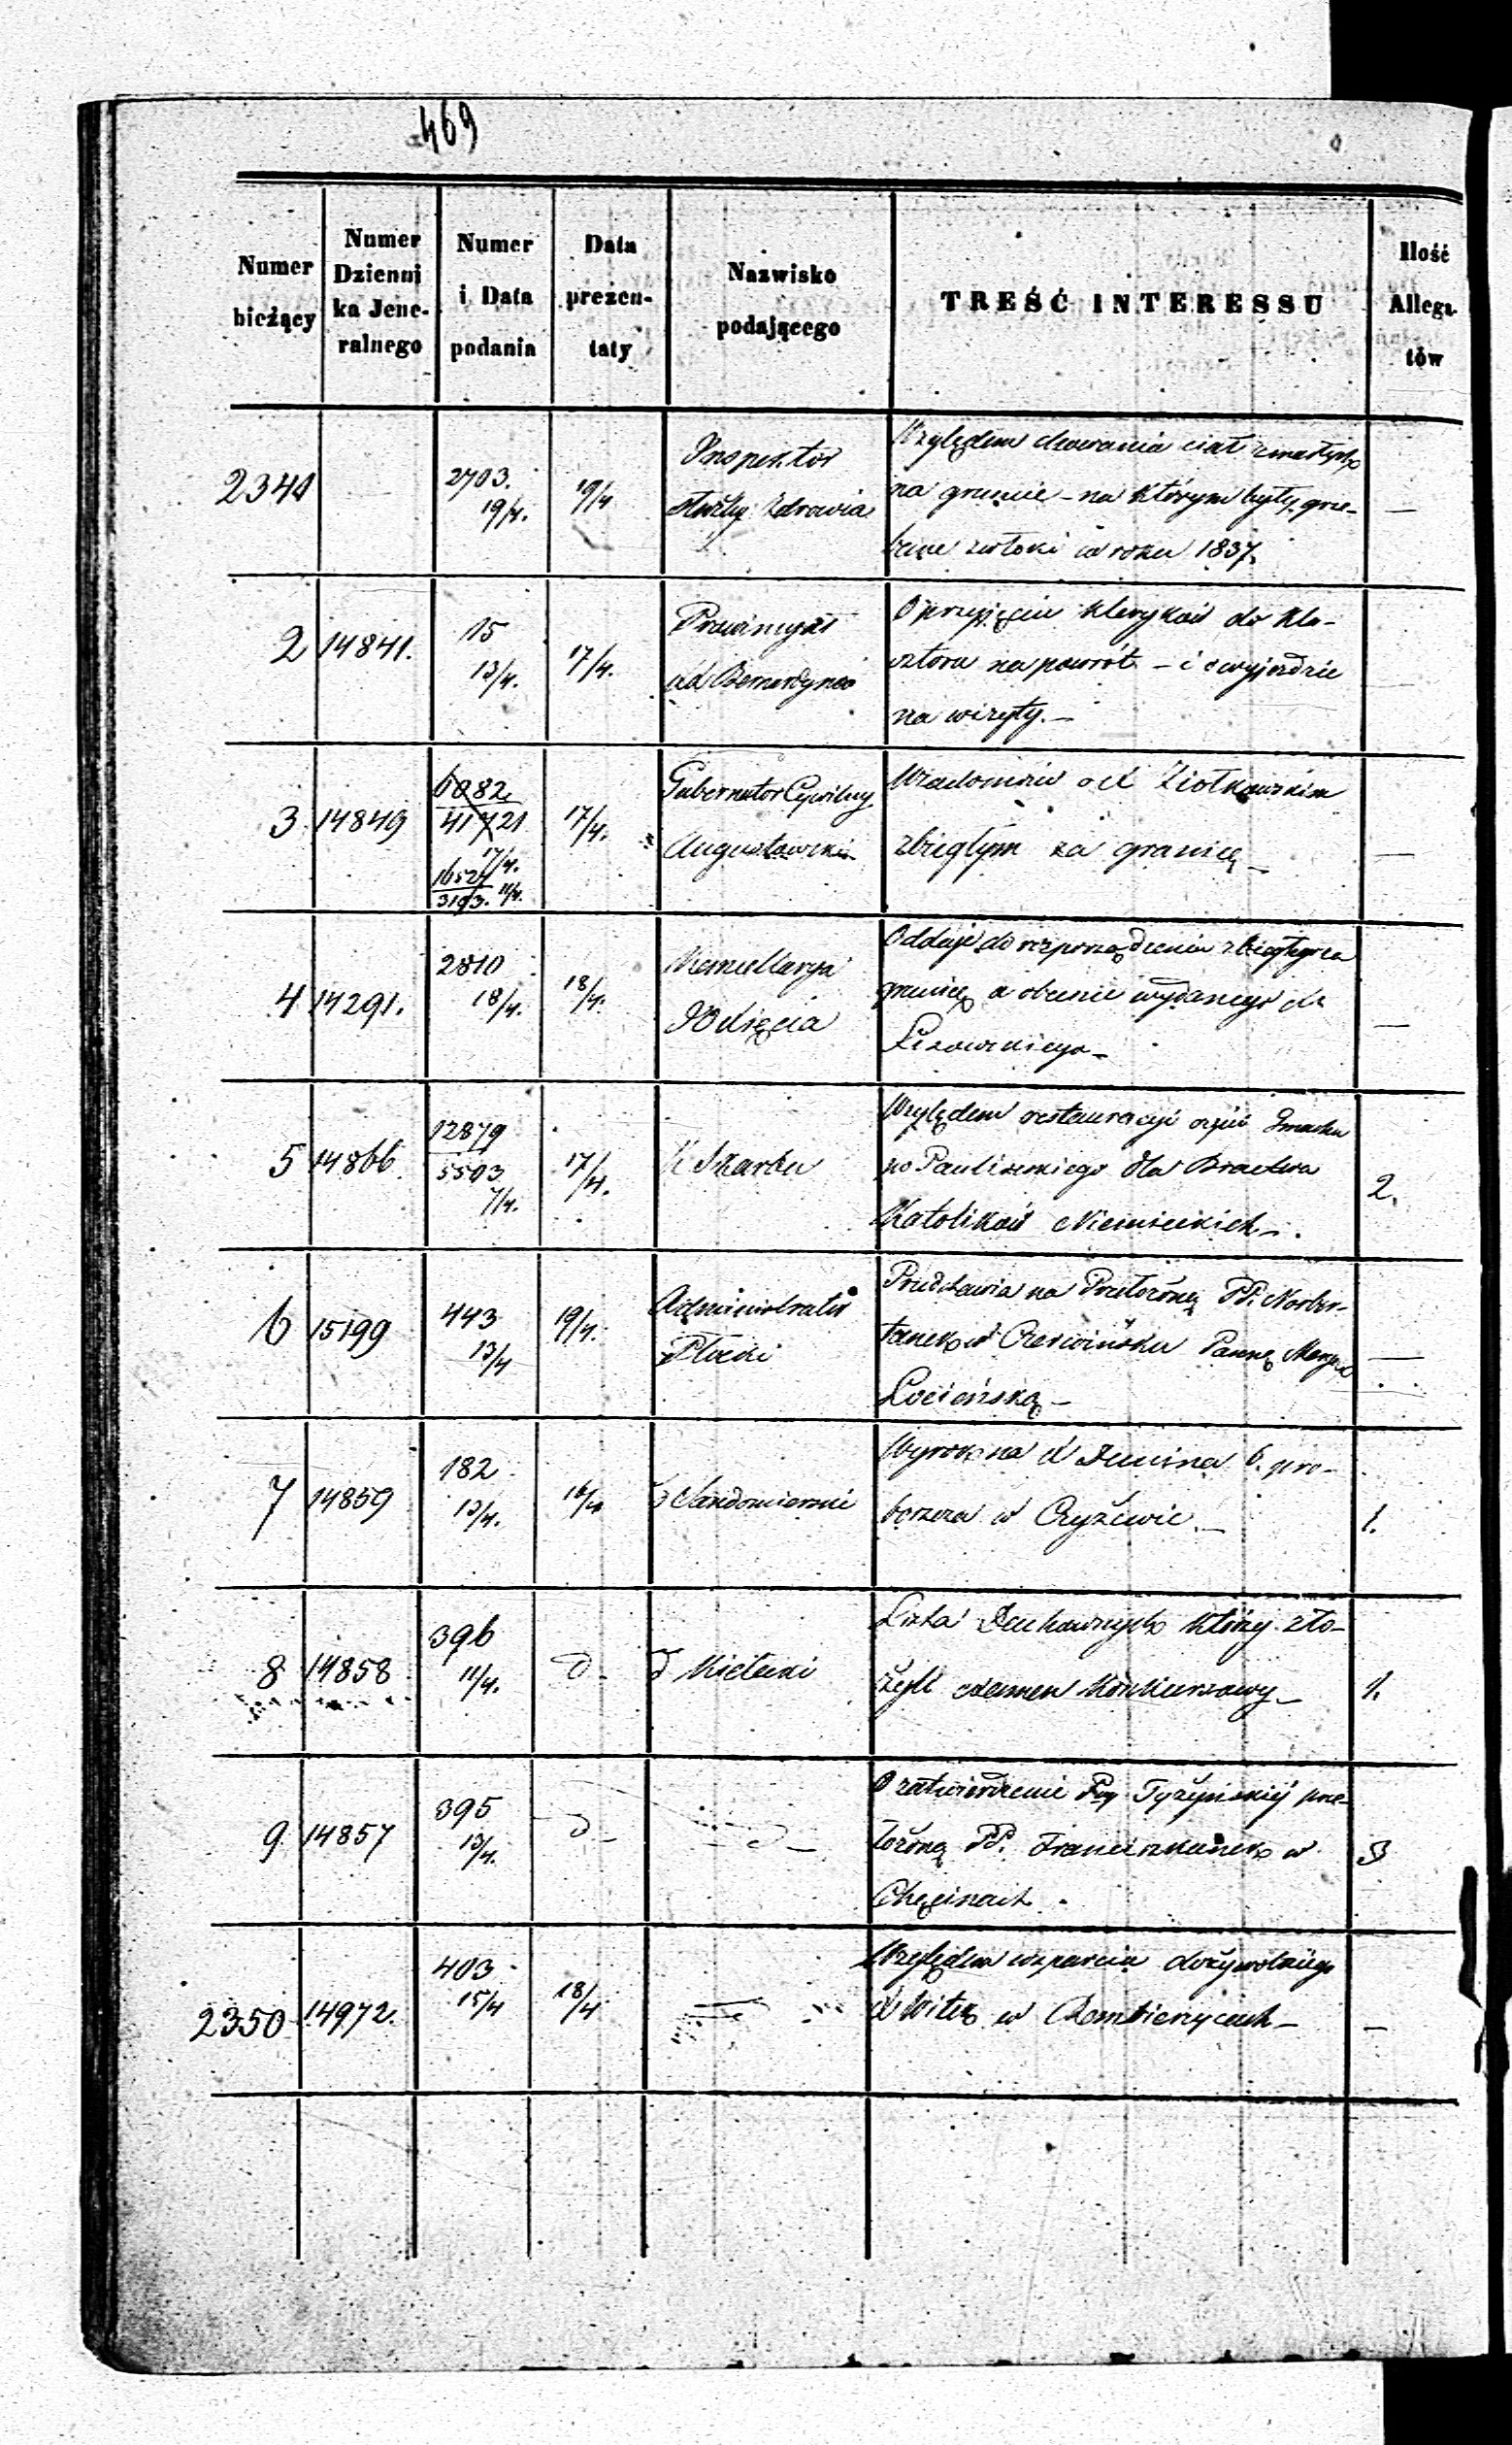 469
Numer bieżący
Numer Dzienni ka Jene- ralnego
Numer i Data podania
Data prezen- taty
Nazwisko podającego
TREŚĆ INTERESSU
Ilość Allega- tów
2341
2703.
19/4.
19/4
Inspektor
służby Zdrowia
Względem chowania ciał zmarłych
na gruncie - na którym były grze-
bane zwłoki w roku 1837.
—
2
14841.
15
13/4.
17/4.
Prowincyał
Bernardynów
O przyjęciu kleryków do kla-
sztoru na powrót - i o wyjeździe
na wizyty. —
3
14849
6082
41721
17/4.
1652
3193. 11/4.
17/4.
Gubernator Cywilny
Augustowski
Wiadomość o Ziołkowskim
zbiegłym za granicę —
—
4
14291.
2810
18/4.
18/4.
Kancellarya
Oddaje do rozporządzenia zbiegłego za
granicę a obecnie wydanego
—
5
14866
12879
5503
7/4.
17/4.
K. Skarbu
Względem restauracyi części Gmachu
po Paulińskiego dla Bractwa
Katolików Niemieckich —.
2.
6
15199
443
13/4
19/4.
Administrator
Płocki
Przedstawia na Przełożoną PP. Norber-
tanek w Czerwińsku Pannę
—
7
14859
182
13/4.
16/4
Sandomierski
Wyrok na Dunina b. pro-
boszcza w Czyżewie. —
1.
8
14858
396
11/4.
d -
d Kielecki
Lista Duchownych którzy zło-
żyli examen Konkursowy —
1.
9
14857
395
13/4.
d -
d —
O zatwierdzenie prze-
łożoną PP. Franciszkanek w
Chęcinach.
3
2350
14972.
403
15/4
18/4
Względem wsparcia dożywotniego
w
—